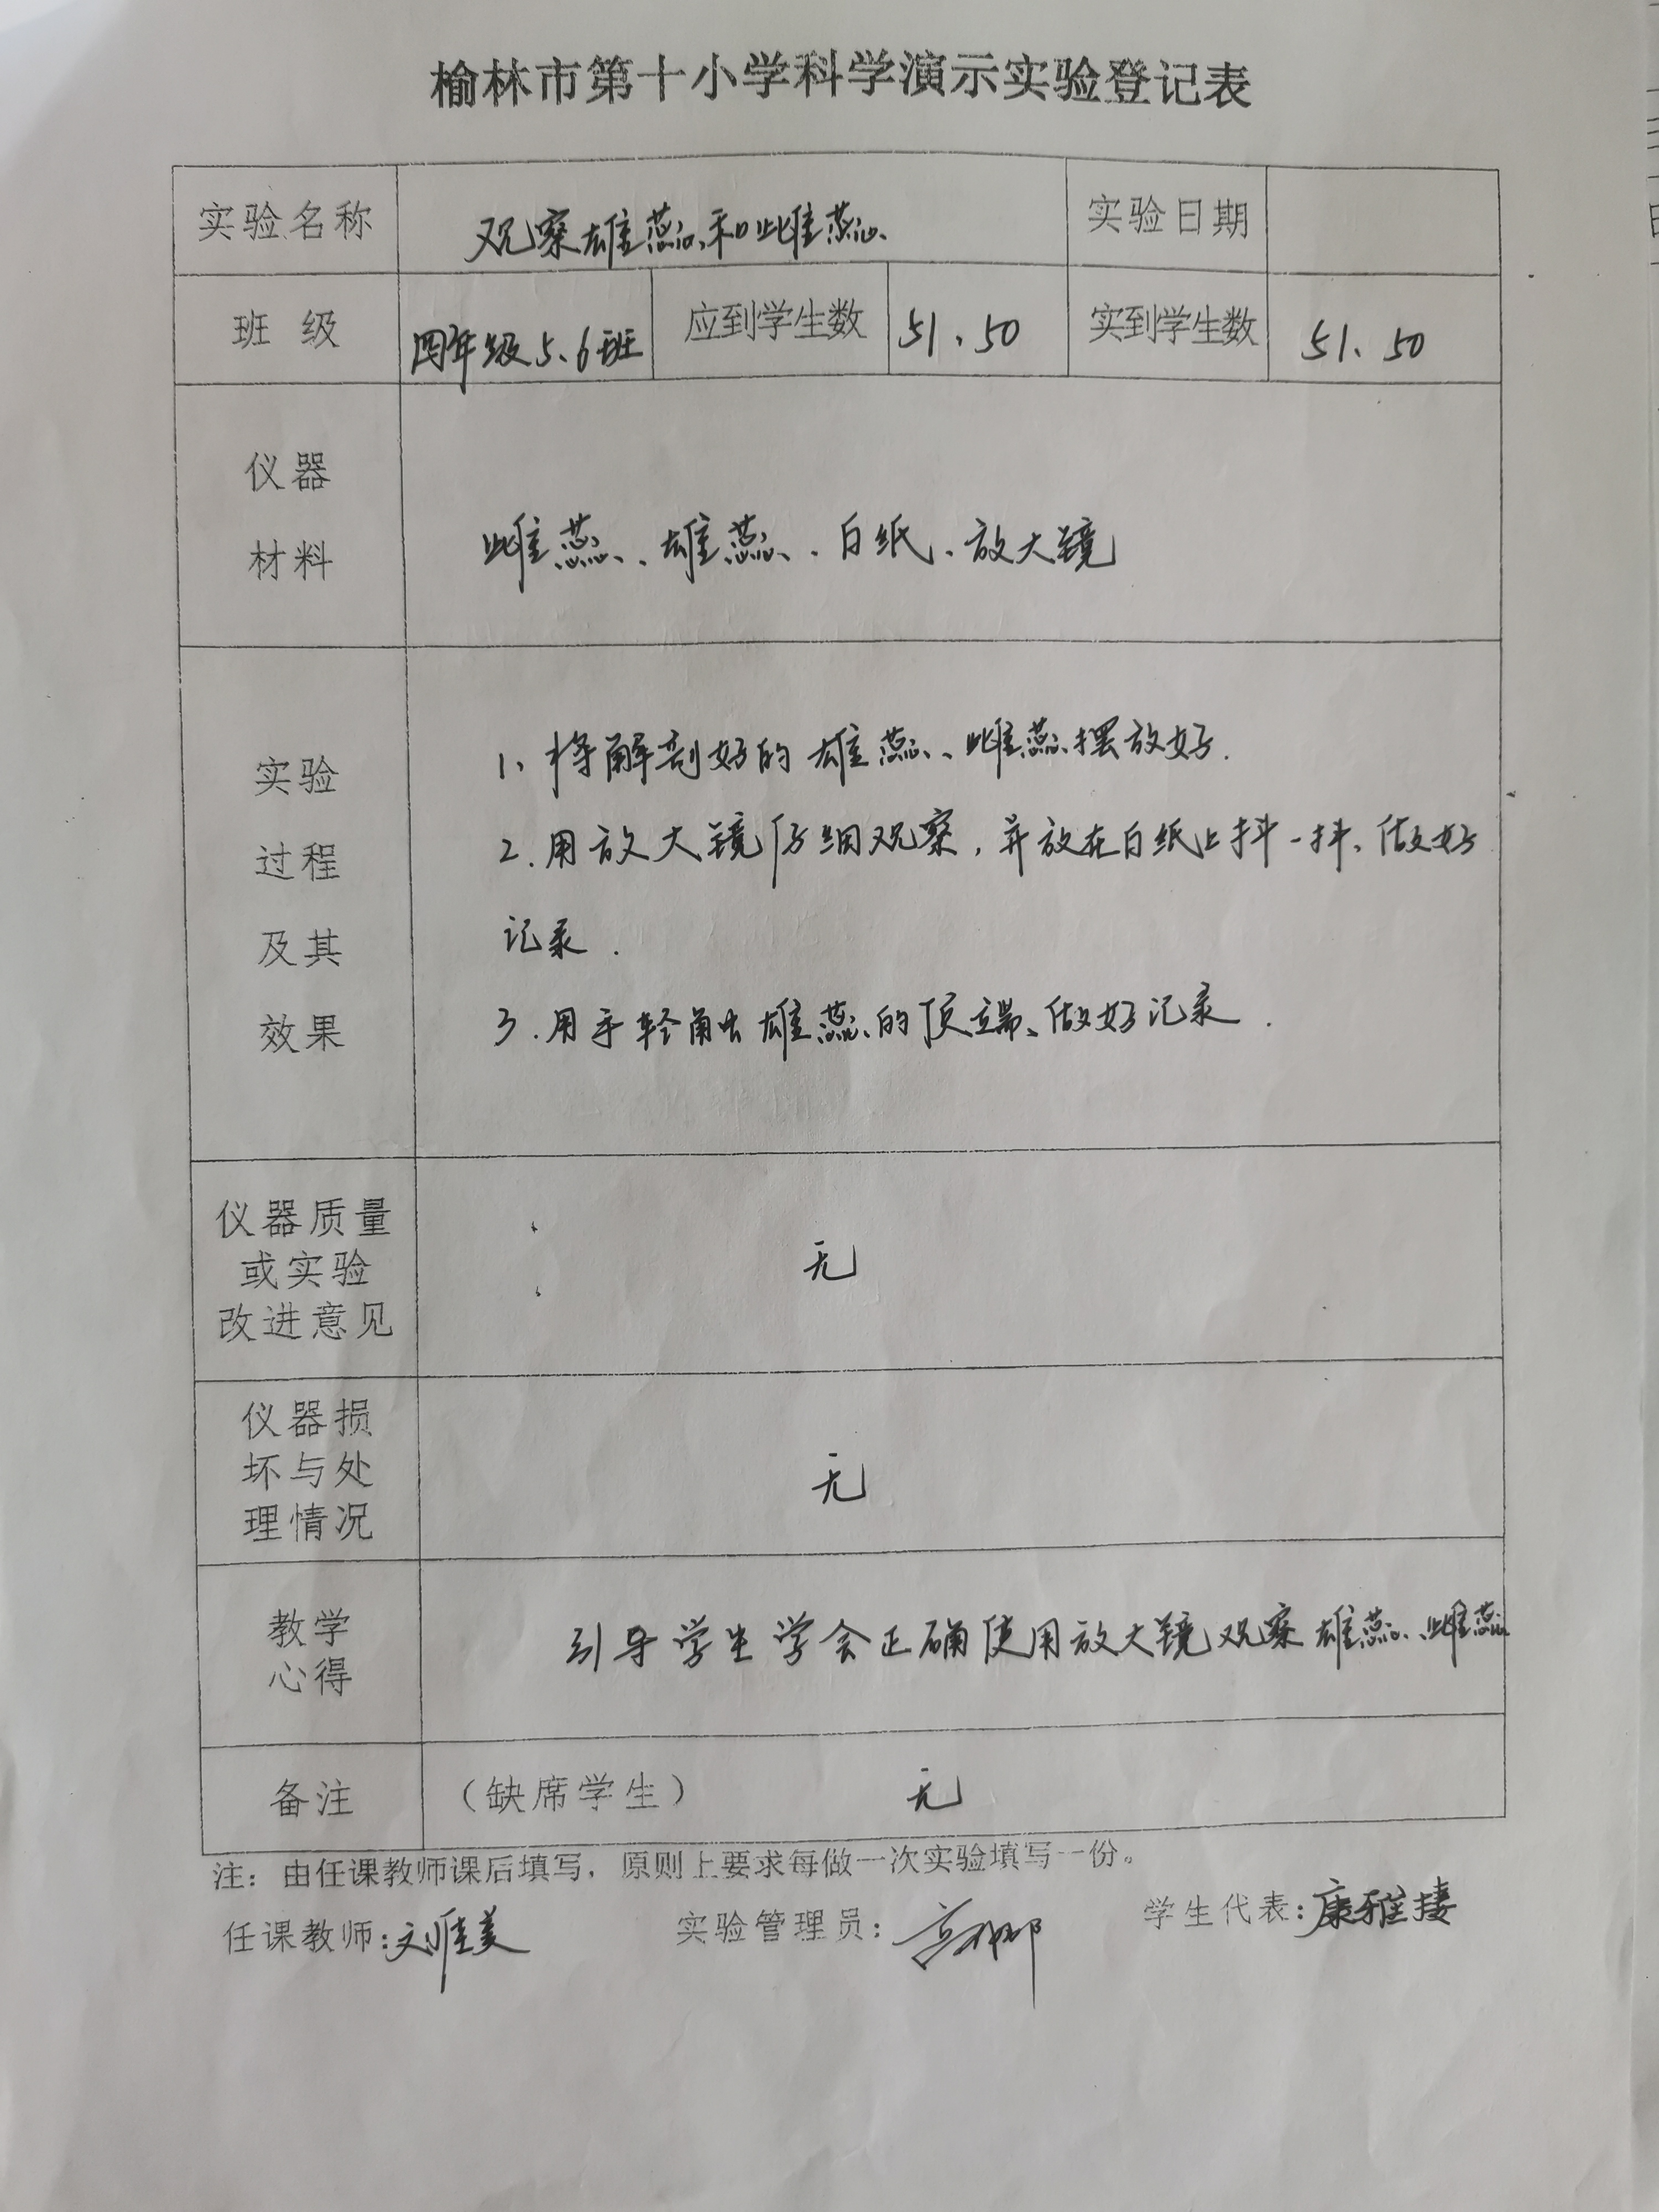 榆林市第十小学科学演示实验登记表
实验名称 观察雄蕊和雌蕊 实验日期
班 级 四年级5、6班 应到学生数 51、50 实到学生数 51、50
仪器
材料
雌蕊、雄蕊、白纸、放大镜
实验
过程
及其
效果
1、将解剖好的雄蕊、雌蕊摆放好.
2.用放大镜仔细观察,并放在白纸上抖一抖、做好
记录.
3.用手轻触雄蕊的顶端、做好记录.
仪器质量
或实验
改进意见
无
仪器损
坏与处
理情况
无
教学
心得
引导学生学会正确使用放大镜观察雄蕊、雌蕊
备注 (缺席学生) 无
注:由任课教师课后填写,原则上要求每做一次实验填写一份。
任课教师: 实验管理员: 学生代表: